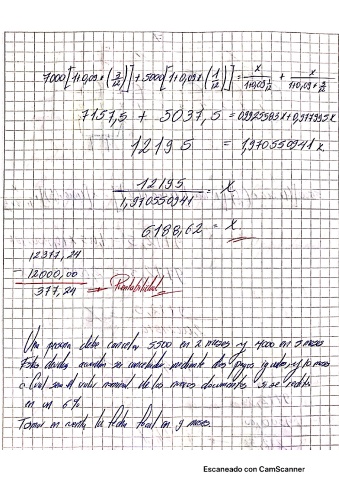 7000[1+0,09×(3/12)]+5000[1+0,09×(1/12)]= x/(1+0,09 1/12) + x/(1+0,09 × 3/12)
7157,5 + 5037,5 = 0,9925583x+0,977995x
12195 = 1,970550941x
12195/1,970550941 = x
6188,62 = x
12377,24
- 12000,00
377,24 → Rentabilidad
Una persona debe cancelar 5500 en 2 meses y 7000 en 5 meses
Estas deudas acuerdan ser canceladas mediante dos pagos iguales y 10 meses
Cual sera el valor nominal de los nuevos documentos si se
en un 6%
Tomar en cuenta la fecha focal en 9 meses.
Escaneado con CamScanner